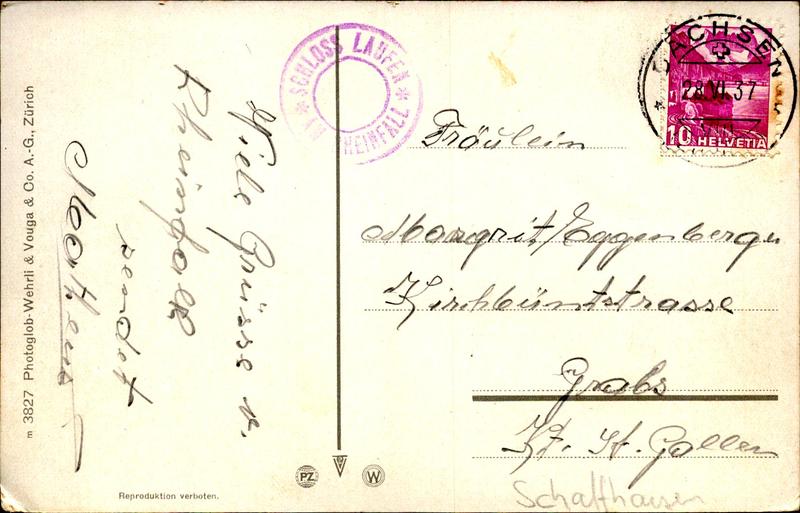 SCHLOSS LAUFEN
RHEINFALL
DACHSEN
28.VI.37
10 HELVETIA
Viele Grüsse v.
Rheinfall
sendet
Fräulein
Margrit Eggenberger
Kirchbüntstrasse
Grabs
Kt. St. Gallen
Schaffhausen
m 3827 Photoglob-Wehrli & Vouga & Co. A.-G., Zürich
PZ
W
Reproduktion verboten.